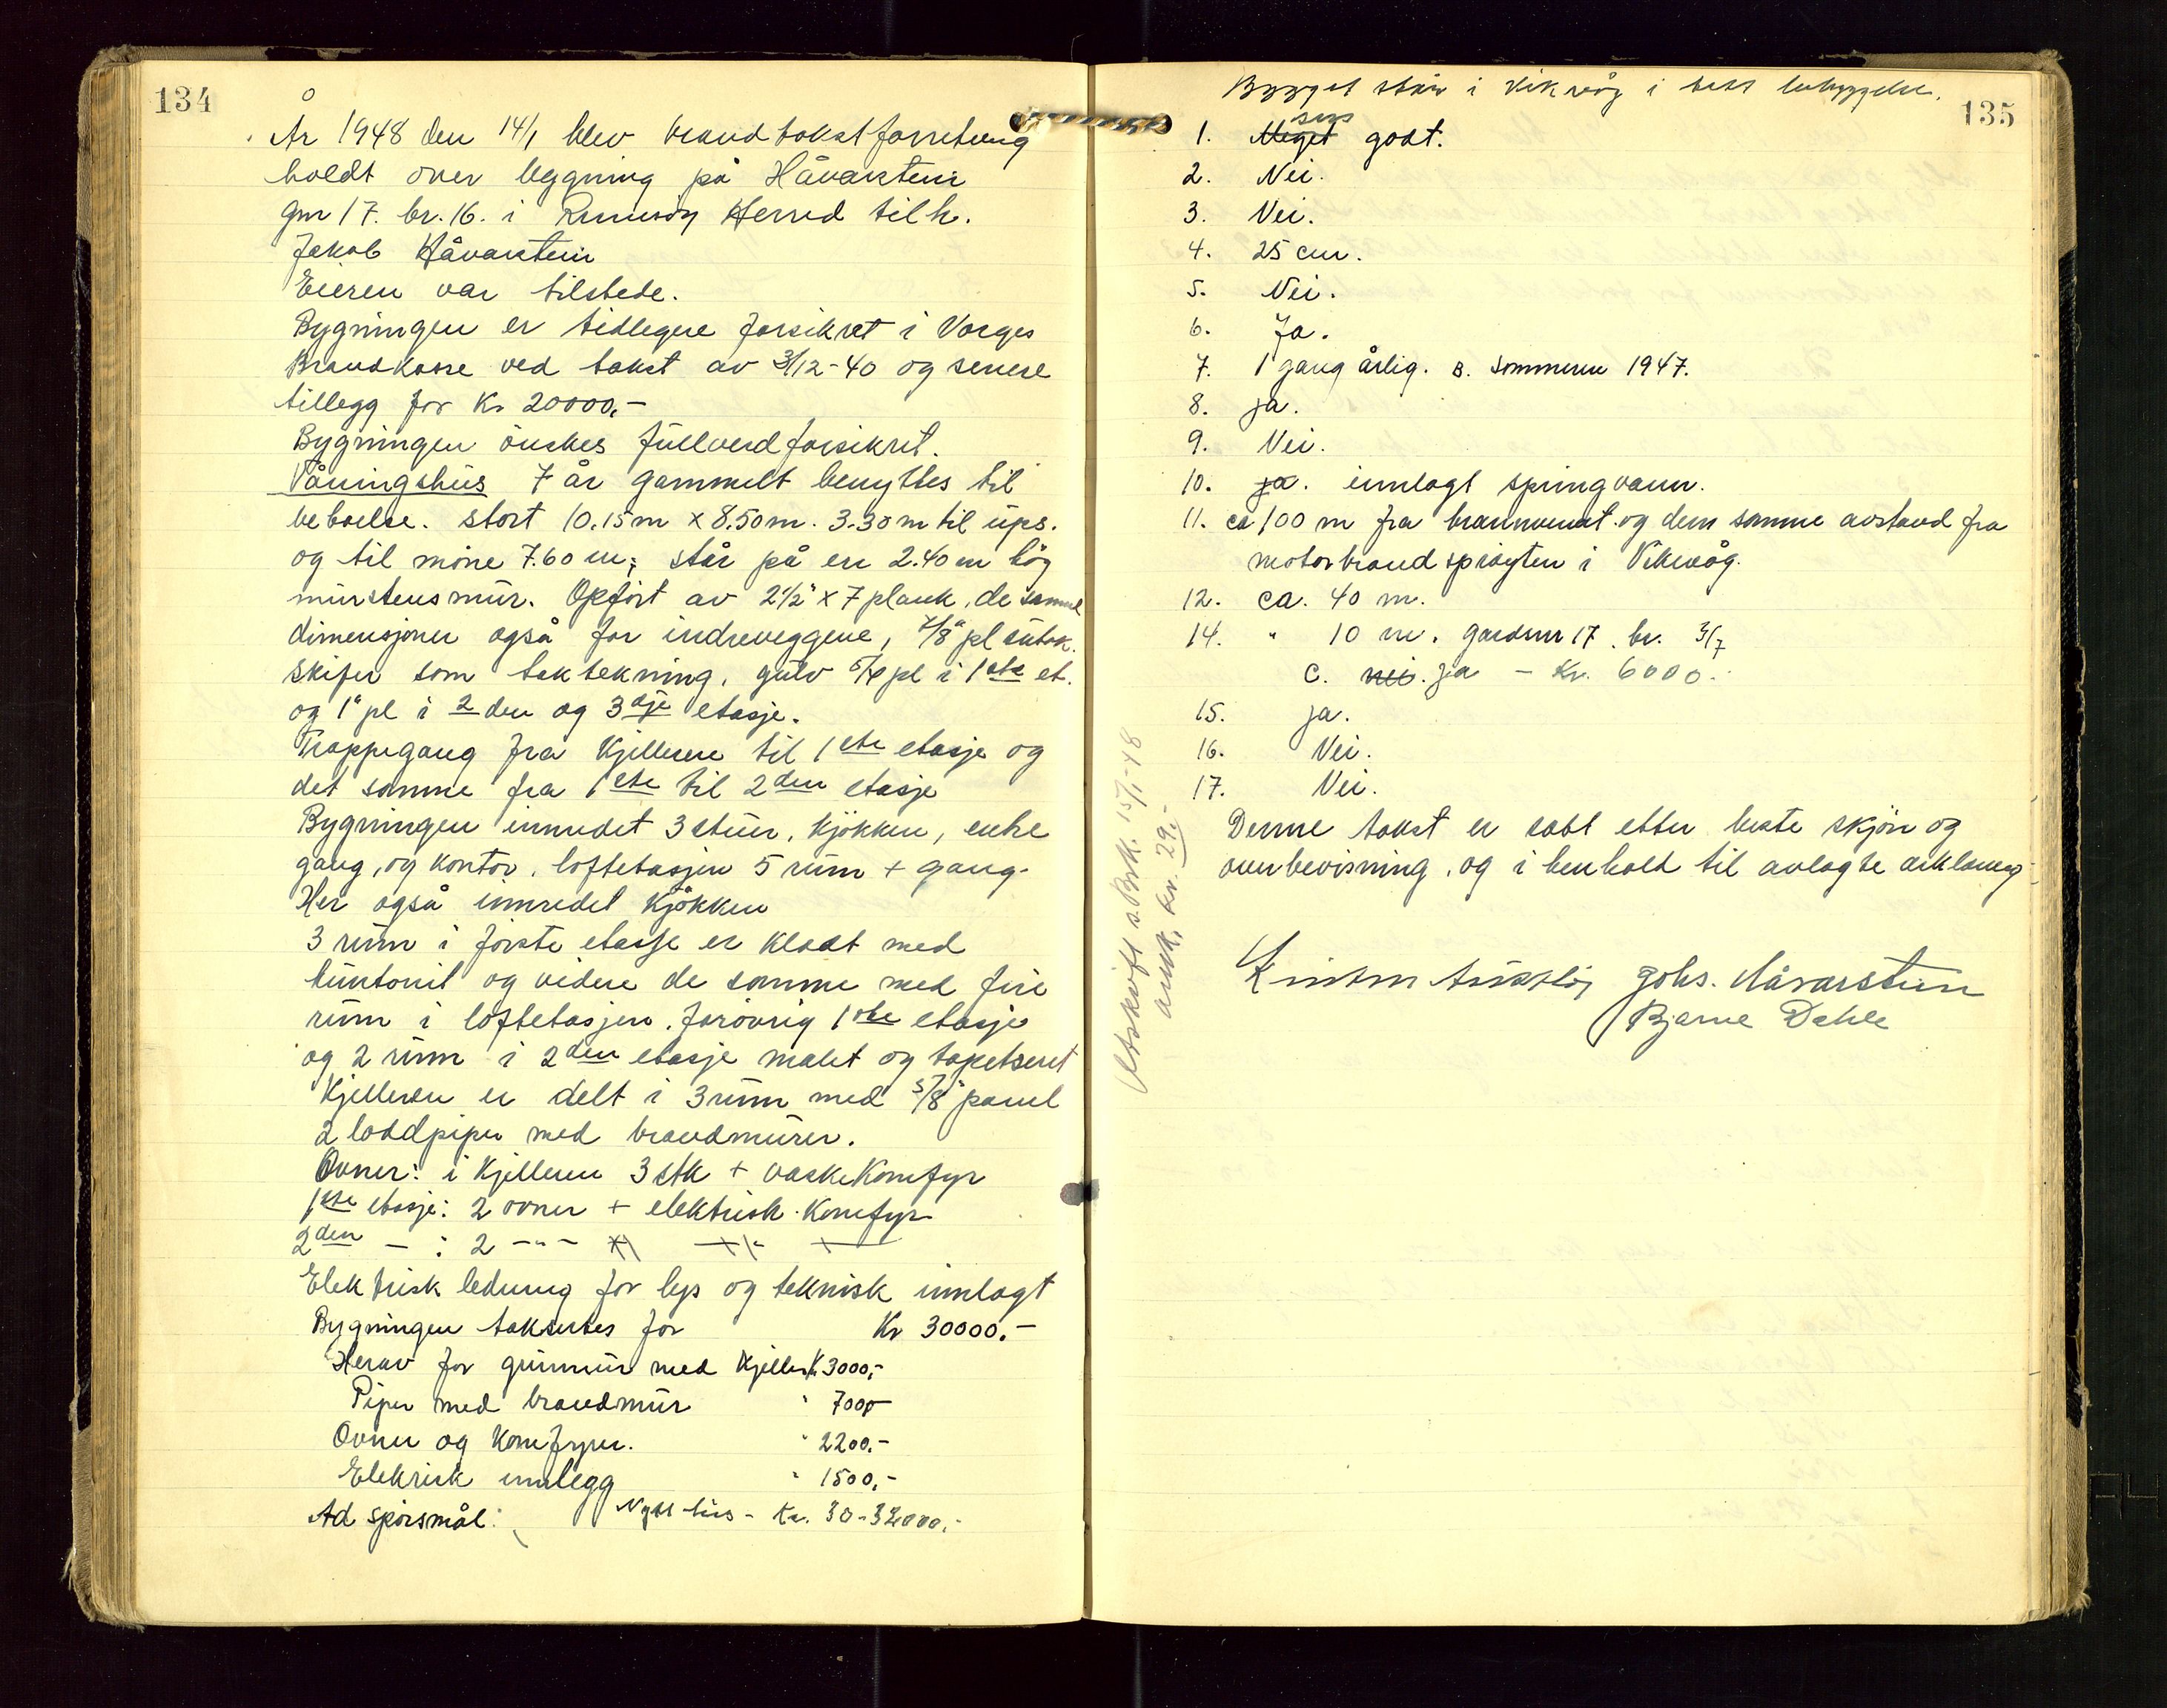 134
År 1948 den 14/1 blev brandtakstforretning
holdt over bygning på Håvarstein
gnr 17. br. 16. i Rennesøy Herred tilh.
Jakob Håvarstein
Eieren var tilstede.
Bygningen er tidlegere forsikret i Norges
Brandkasse ved takst av 3/12-40 og senere
tillegg for Kr 20000,-
Bygningen önskes fullverdforsikret.
Våningshus 7 år gammelt benyttes til
beboelse. stort 10.15m x 8.50m. 3.30m til ups.
og til möne 7.60 m; står på en 2.40m hög
murstensmur. Opfört av 2½" x 7 plank, de samme
dimensjoner også for indreveggene, 7/8" pl sutak.
Skifer som taktekning, gulv 5/4 pl i 1ste et.
og 1" pl i 2den og 3dje etasje.
Trappegang fra Kjelleren til 1ste etasje og
det samme fra 1ste til 2den etasje
Bygningen innredet 3 stuer, Kjökken, entre
gang, og kontor, loftetasjen 5 rum + gang.
Her også innredet Kjökken
3 rum i förste etasje er kledt med
huntonit og videre de samme med fire
rum i loftetasjen. forövrig 1ste etasje
og 2 rum i 2den etasje malet og tapetseret
Kjelleren er delt i 3 rum med 5/8" panel
2 loddpiper med brandmurer.
Ovner: i Kjelleren 3 stk + vaskekomfyr
1ste etasje: 2 ovner + elektrisk Komfyr
2den - : 2 -"-
Elektrisk ledning for lys og teknisk innlagt
Bygningen takseres for Kr 30000.-
Herav for grunnmur med Kjeller Kr 3000,-
Piper med brandmur " 700,-
Ovner og Komfyrer. " 2200.-
Elekrisk innlegg " 1500,-
Ad spörsmål: Nytt hus - Kr. 30-32000,-
135
Bygget står i Vikevåg i tett bebyggelse.
1. Meget godt.
2. Nei.
3. Nei.
4. 25 cm.
5. Nei.
6. Ja.
7. 1 gang årlig. B. Sommeren 1947.
8. ja.
9. Nei.
10. ja. innlagt springvann.
11. ca 100 m fra brannvent og den samme avstand fra
motorbrandspröyten i Vikevåg.
12. ca. 40 m.
14. " 10 m. gardsnr 17. br. 3/7
C. nei. ja - Kr. 6000.-
15. ja.
16. Nei.
17. Nei.
Denne takst er satt etter beste skjön og
overbevisning, og i henhold til avlagte erklæring
Johs. Håvarstein
Bjarne Dahle
Utskrift s. Brk. 15/1-48
ank. kr. 29,-